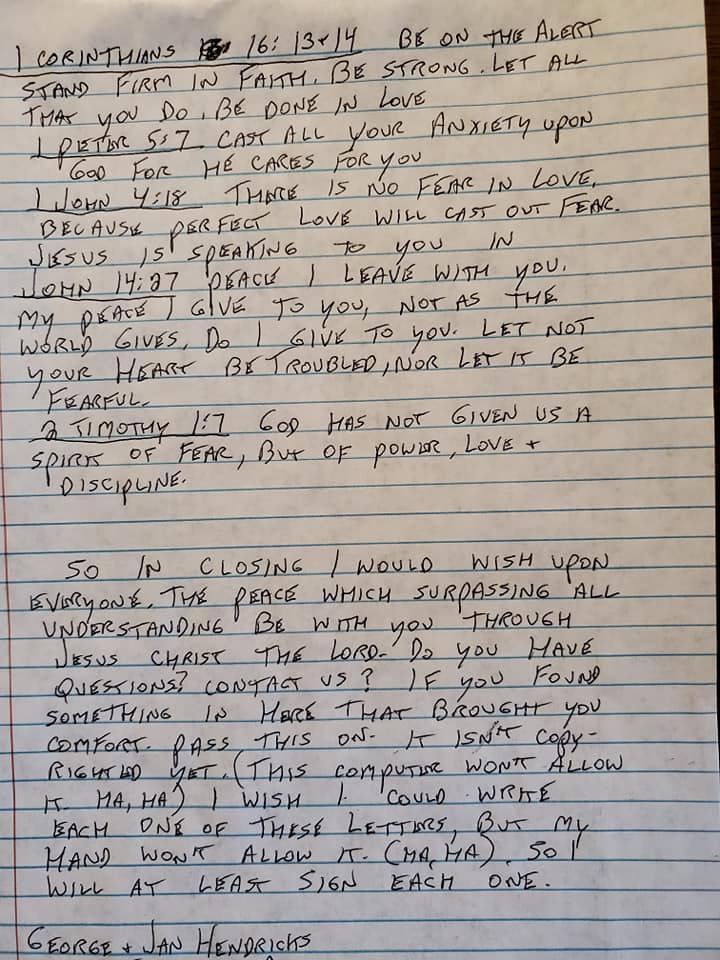 1 CORINTHIANS 16: 13+14 BE ON THE ALERT
STAND FIRM IN FAITH. BE STRONG. LET ALL
THAT YOU DO, BE DONE IN LOVE
1 PETER 5:7 CAST ALL YOUR ANXIETY UPON
GOD FOR HE CARES FOR YOU
1 JOHN 4:18 THERE IS NO FEAR IN LOVE,
BECAUSE PERFECT LOVE WILL CAST OUT FEAR.
JESUS IS SPEAKING TO YOU IN
JOHN 14:27 PEACE I LEAVE WITH YOU.
MY PEACE I GIVE TO YOU, NOT AS THE
WORLD GIVES, DO I GIVE TO YOU. LET NOT
YOUR HEART BE TROUBLED, NOR LET IT BE
FEARFUL.
2 TIMOTHY 1:7 GOD HAS NOT GIVEN US A
SPIRIT OF FEAR, BUT OF POWER, LOVE +
DISCIPLINE.
SO IN CLOSING I WOULD WISH UPON
EVERYONE. THE PEACE WHICH SURPASSING ALL
UNDERSTANDING BE WITH YOU THROUGH
JESUS CHRIST THE LORD. DO YOU HAVE
QUESTIONS? CONTACT US? IF YOU FOUND
SOMETHING IN HERE THAT BROUGHT YOU
COMFORT. PASS THIS ON. IT ISN'T COPY-
RIGHTED YET. (THIS COMPUTER WON'T ALLOW
IT. HA, HA) I WISH I COULD WRITE
EACH ONE OF THESE LETTERS, BUT MY
HAND WON'T ALLOW IT. (HA, HA). SO I
WILL AT LEAST SIGN EACH ONE.
GEORGE + JAN HENDRICKS